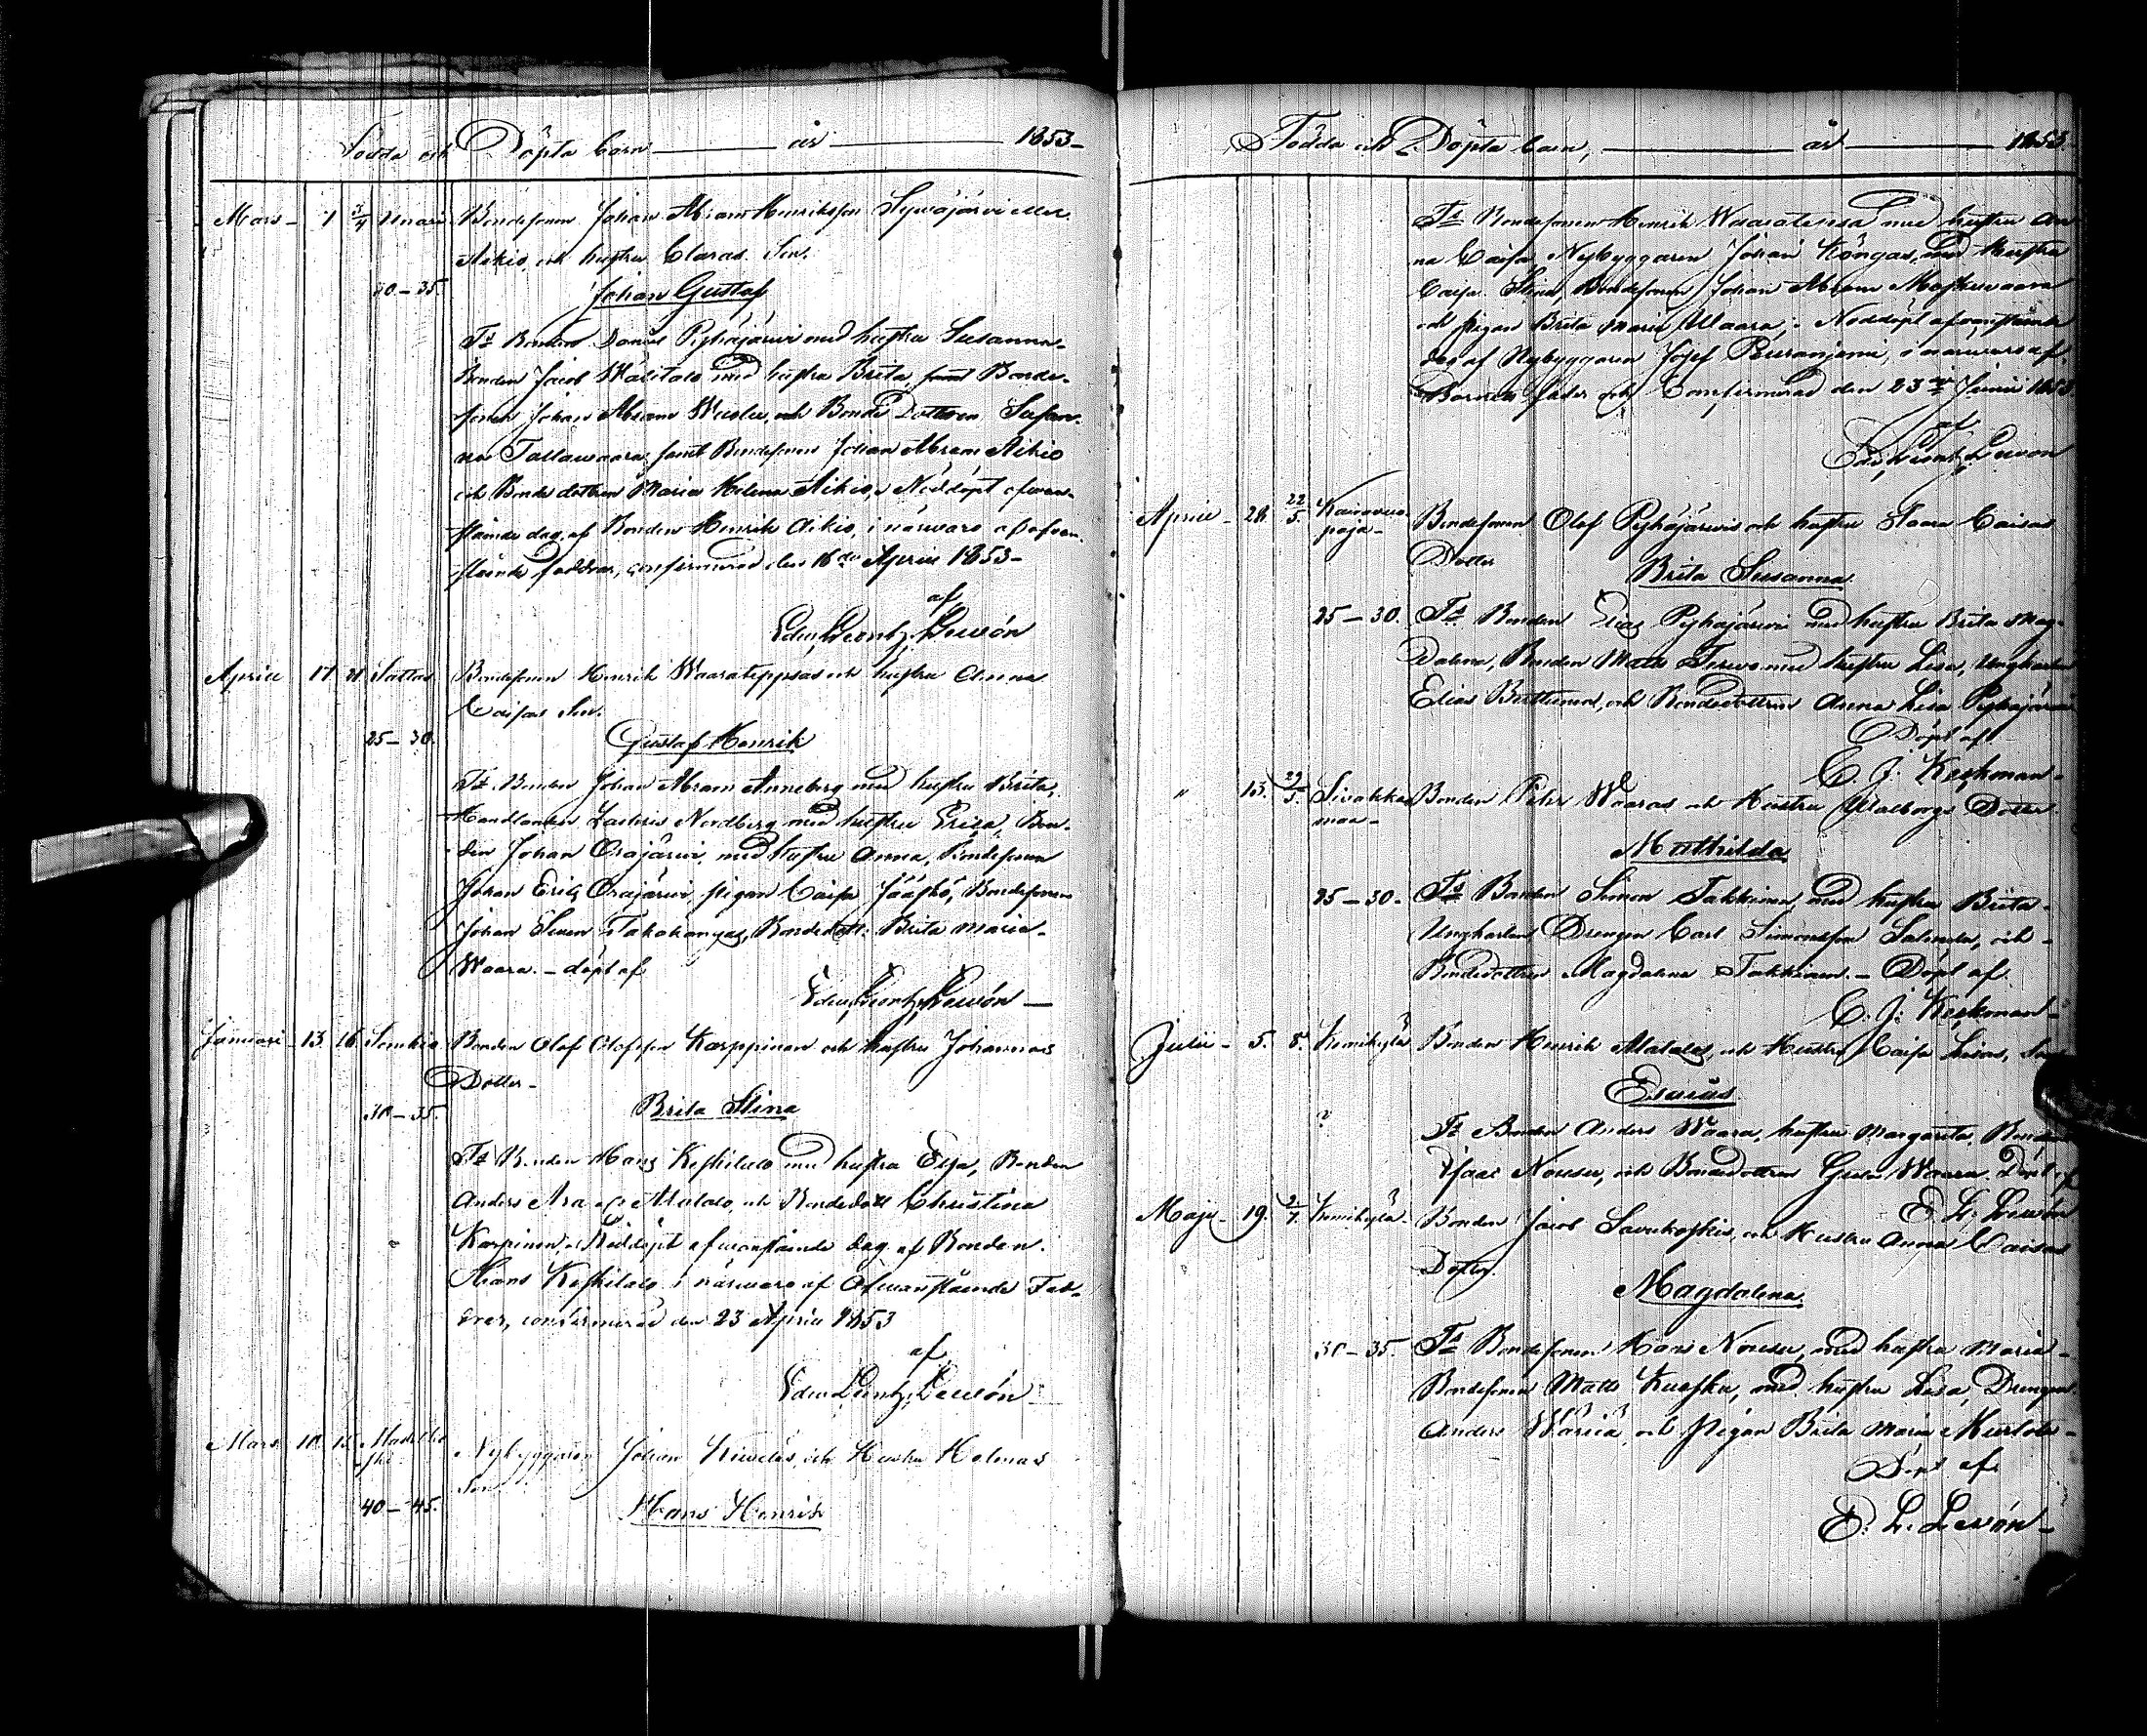 Födda och Döpta barn år 1853
Mars 1 3/4 Unari Bondesonen Johan Abram Henriksson Syväjärvi eller
Aikio, och hustru Claras Son.
40-35. Johan Gustaf
Ts Bonden Daniel Pyhäjärvi med hustru Susanna
Bonden Jacob Walitalo med hustru Brita, samt Bonde-
sonen Johan Abram och Bonde Dottren Susan-
na Tallawaara, samt Bondesonen Johan Abram Aikio
och Bonde dottren Maria Helena Aikio, Nöddöpt ofwan-
stående dag, af Bonden Henrik Aikio, i närwaro af ofwan-
stående faddrar, confirmerad den 16de April 1853-
af
Lewón
April 17 21 Sattas Bondesonen Henrik Waarateppsas och hustru Anna
Caisas Son.
25-30. Gustaf Henrik
Ts Bonden Johan Abram Anneberg med hustru Brita,
Handlanden Nordberg med hustru Erica, Bon-
den Johan Orajärwi, med hustru Anna, Bondesonen
Johan Eric Orajärwi, pigan Caisa Jääskö, Bondesonen
Johan Takakangas, Bondedott. Brita Maria
Waara. - döpt af
Lewón
Januari 13 16 Sombio Bonden Olof Olofsson Karppinen och hustru Johannas
Dotter-
30-35. Brita Stina
Ts Bonden Hans Keskitalo med hustru Elsa, Bonden
Anders Ara eller Alatalo, och Bondedott Christina
Karpinen, Nöddöpt ofwanstående dag af Bonden
Hans Keskitalo i närwaro af Ofwanstående Fad-
drar, confirmerad den 23 April 1853
af
Lewón
Mars 10 15
Nybyggaren Johan och Hustru Helenas
Son
40-45. Hans Henrik
Födda och Döpta barn, år 1853
Ts Bondesonen Henrik Waarateppsa, med hustru An-
na Caisa, Nybyggaren Johan Köngas, med hustru
Caisa Stina, Bondesonen Johan Abram
och pigan Brita Maria Waara; Nöddöpt ofwanstående
dag af Nybyggaren Josef Puranjemi, i närwaro af
Barnets fader och Confirmerad den 23 Junii 1853
af
Lewon
April 28 22/5. Bondesonen Olof Pyhäjärwis och hustru Saara Caisas
Dotter
Brita Susanna
25-30. Ts Bonden Elias Pyhäjärwi med hustru Brita Mag-
dalena, Bonden Matts Terwo med hustru Lisa, Ungkarlen
Elias Berttunen, och Bondedottren Anna Lisa Pyhäjärwi
Döpt af
C. J. Keckman-
" 13. 29/5. Siwakka Bonden Pehr Waaras och Hustru Walborgs Dotter
maa-
Mathilda
25-30- Ts Bonden Simon Takkinen med hustru Brita
Ungkarlen Drengen Carl Simonsson Salmela, och
Bondedottren Magdalena Takkinen. - Döpt af
C. J. Keckman-
Julii 5. 8. Kemikylä Bonden Henrik Alatalos, och Hustru Caisa Lisas, Son
Esaias
? Ts Bonden Anders Waara, hustru Margareta, Bonden
Isaac Nousu, och Bondedottren Greta Waara. Döpt af
E. L. Lewón
Maji 19. 2/7. Kemikylä. Bonden Jacob Savukoskis, och Hustru Anna Caisas
Dotter.
Magdalena
30-35. Ts Bondesonen Hans Nousu, med hustru Maria-
Bondesonen Matts Kuosku, med hustru Lisa, Drengen
Anders Wäriä, och Pigan Brita Maria
Döpt af
E. L. Lewón-